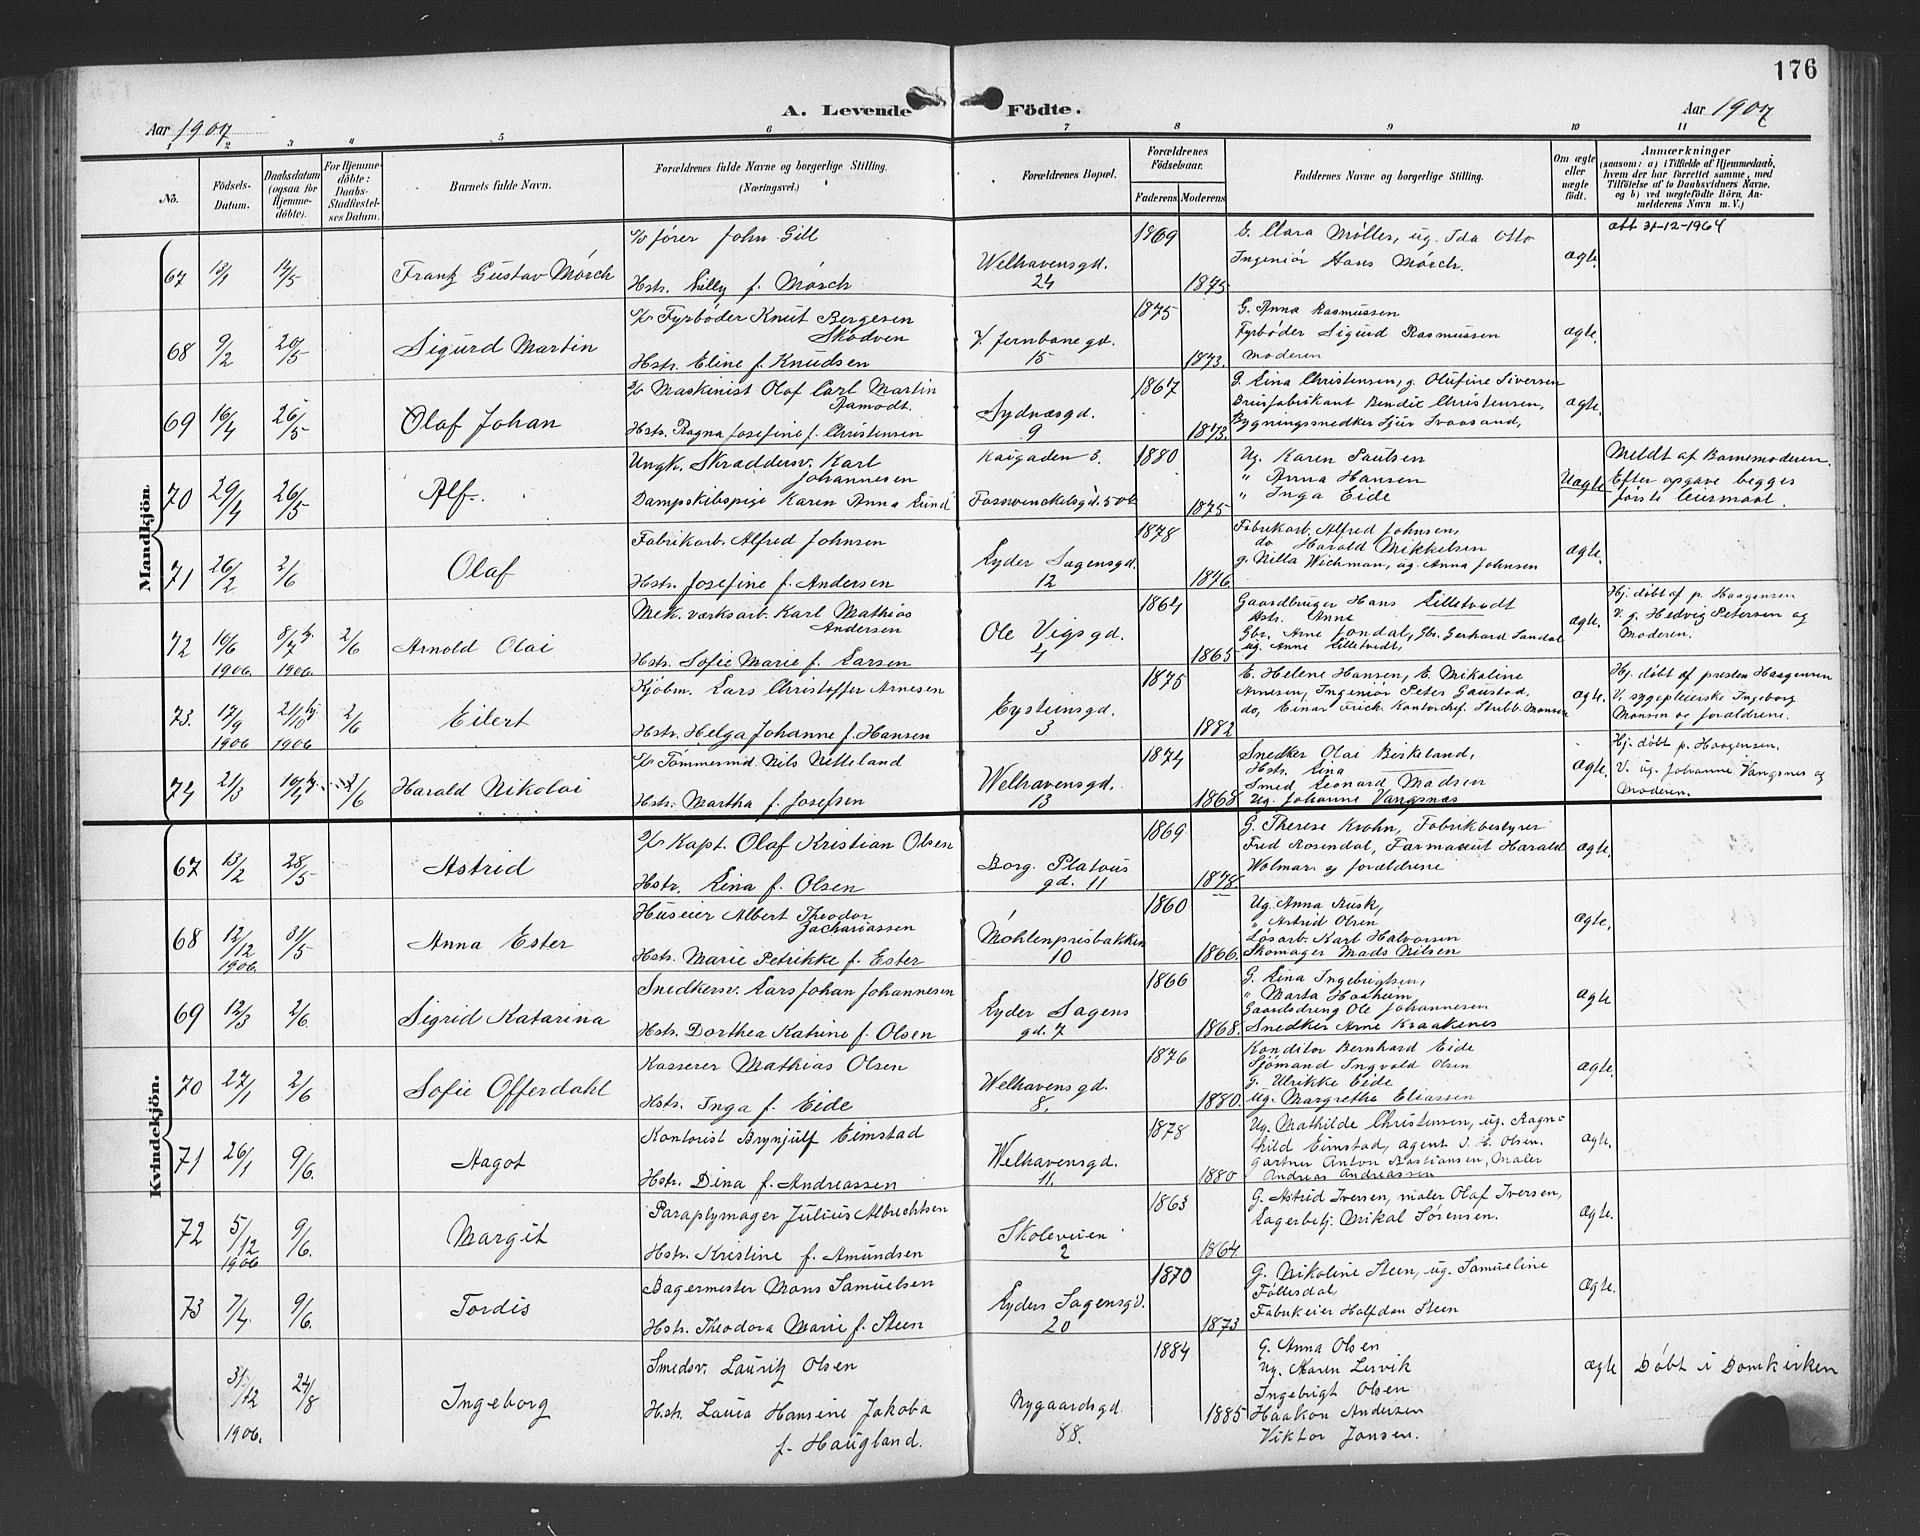 176
A. Levende Födte.
Aar 1907
Aar 1907
1 2 3 4 5 6 7 8 9 10 11
No.
Födsels-Datum.
Daabsdatum (ogsaa for Hjemme-döbte).
For Hjemme-döbte: Daabs-Stadfæstel-ses Datum.
Barnets fulde Navn.
Forældrenes fulde Navne og borgerlige Stilling. (Næringsvei.)
Forældrenes Bopæl.
Forældrenes Födselsaar.
Faderens
Moderens
Faddernes Navne og borgerlige Stilling.
Om ægte eller uægte födt.
Anmærkninger
(saasom: a) i Tilfælde af Hjemmedaab, hvem der har forrettet samme, med Tilföielse af to Daabsvidners Navne. og b) ved uægtefödte Börn, An-melderens Navn m. V.)
Mandkjön.
67 13/1 12/5 Frantz Gustav Mösch
fører John Gill
Hstr. Lilly f. Mösch
Welhavensgd. 24
1869 1875
G. Clara Møller, ug. Ida Otto
Ingeniør Hans Mösch.
ægte.
att 31-12-1964
68 9/2 20/5 Sigurd Martin
Fyrbøder Knut Bergesen
Skodven
Hstr. Eline f. Knudsen
V. Jernbanegd. 15
1875 1873.
G. Anna Rasmussen
Fyrbøder Sigurd Rasmussen
Moderen
ægte.
69 16/4 26/5 Olaf Johan
Maskinist Olaf Carl Martin
Ramodt.
Hstr. Ragna Josefine f. Christensen
Sydnæsgd. 9
1867 1873.
G. Lina Christensen, g. Olufine Siversen
Brusfabrikant Bendie Christensen,
Bygningssnedker Sjur Svaasand,
ægte.
70 29/4 26/5 Alf.
Ungk. Skræddersv. Karl
Johannesen
Dampskibspige Karen Anna Lund
Kaigaden 3.
Fosswinckelsgd. 50b
1880 1875
Ug. Karen Paulsen
" Anna Hansen
" Inga Eide
Uægte
Meldt af Barnemoderen.
Efter opgave begges
første leiermaal.
71 26/2 2/6 Olaf
Fabrikarb. Alfred Johnsen
Hstr. Josefine f. Andersen
Lyder Sagensgd. 12
1878 1876
Fabrikarb. Alfred Johnsen,
do Harald Mikkelsen
g. Nilla Wichman, ug. Anna Johnsen
ægte.
72 10/6 1906. 8/7 hj. 1906. 2/6 Arnold Olai
Mek. værksarb. Karl Mathias
Andersen
Hstr. Sofie Marie f. Larsen
Ole Vigsgd. 4
1864 1865
Gaardbruger Hans Lilletvedt
Hstr. Anne
Gbr. Arne Jondal, Gbr. Gerhard Landal
ug. Anne Lilletvedt,
ægte.
Hj. døbt af p. Haagensen
V. g. Hedvig Petersen og
Moderen.
73. 17/9 1906 21/10 hj. 1906 2/6 Eilert
Kjöbm. Lars Christoffer Arnesen
Hstr. Helga Johanne f. Hansen
Eysteinsgd. 3
1875 1882
E. Helene Hansen, E. Mikaline
Arnesen, Ingeniør Peter Gaustad,
do, Einar Frick. Kontorchef. Stubb. Monsen
ægte.
Hj. døbt af presten Haagensen
V. sygepleierske Ingeborg
Monsen og forældrene.
74 21/3 10/4 hj. 2/6 Harald Nikolai
Tømmermd. Nils Nitteland
Hstr. Martha f. Josefsen
Welhavensgd. 13
1874 1868
Snedker Olai Birkeland,
Hstr. Lina
Smed Leonard Madsen
Ug. Johanne Vangsnæs
ægte.
Hj. døbt p. Haagensen.
V. ug. Johanne Vangsnes og
Moderen.
Kvindekjön.
67 13/2 28/5 Astrid
Kapt. Olaf Kristian Olsen
Hstr. Lina f. Olsen
Borg. Platous gd. 11
1869 1878
G. Therese Krohn, Fabrikbestyrer
Fred Rosendal, Farmaceut Harald
Wolmar og forældrene
ægte.
68 12/12 1906. 31/5 Anna Ester
Huseier Albert Theodor
Zachariassen
Hstr. Marie Petrikke f. Ester
Møhlenprisbakken 10
1860 1866.
Ug. Anna Rusk,
" Astrid Olsen
Løsarb. Karl Halvorsen
Skomager Mads Nilsen
ægte.
69 12/3 2/6. Sigrid Katarina
Snedkersv. Lars Johan Johannesen
Hstr. Dorthea Katrine f. Olsen
Lyder Sagens gd. 7
1866 1868.
G. Lina Ingebrigtsen,
" Marta Haaheim
Gaardsdreng Ole Johannesen
Snedker Arne Kraakenes
ægte
70 27/1 2/6 Sofie Offerdahl
Kasserer Mathias Olsen
Hstr. Inga f. Eide
Welhavensgd. 8.
1876 1880.
Konditor Bernhard Eide
Sjömand Ingvald Olsen
g. Ulrikke Eide
ug. Margrethe Eliassen
ægte.
71 26/1 9/6. Aagot
Kontorist Brynjulf Eimstad
Hstr. Dina f. Andreassen
Welhavensgd. 11.
1878 1880
Ug. Mathilde Christensen, ug. Ragn-
hild Eimstad, agent J. E. Olsen.
Gartner Anton Bastiansen, Maler
Andreas Andreassen
ægte.
72 5/12 1906 9/6. Margit
Paraplymager Julius Albrechtsen
Hstr. Kristine f. Amundsen
Skoleveien 2
1863 1864
G. Astrid Iversen, maler Olaf Iversen,
Lagerbetj. Mikal Sørensen.
ægte.
73 7/4. 9/6. Tordis
Bagermester Mons Samuelsen
Hstr. Theodora Marie f. Steen
Lyders Sagensgd. 20
1870 1873
G. Nikoline Steen, ug. Samueline
Føllesdal,
Fabrikeier Halfdan Steen
ægte.
31/12 1906. 24/8 Ingeborg
Smedsv. Lauritz Olsen
Hstr. Laura Hansine Jakoba
f. Haugland.
Nygaardsgd. 88.
1884 1885
G. Anna Olsen
Ug. Karen Lervik
Ingebrigt Olsen
Haakon Andersen
Viktor Jansen.
ægte
Døbt i Domkirken